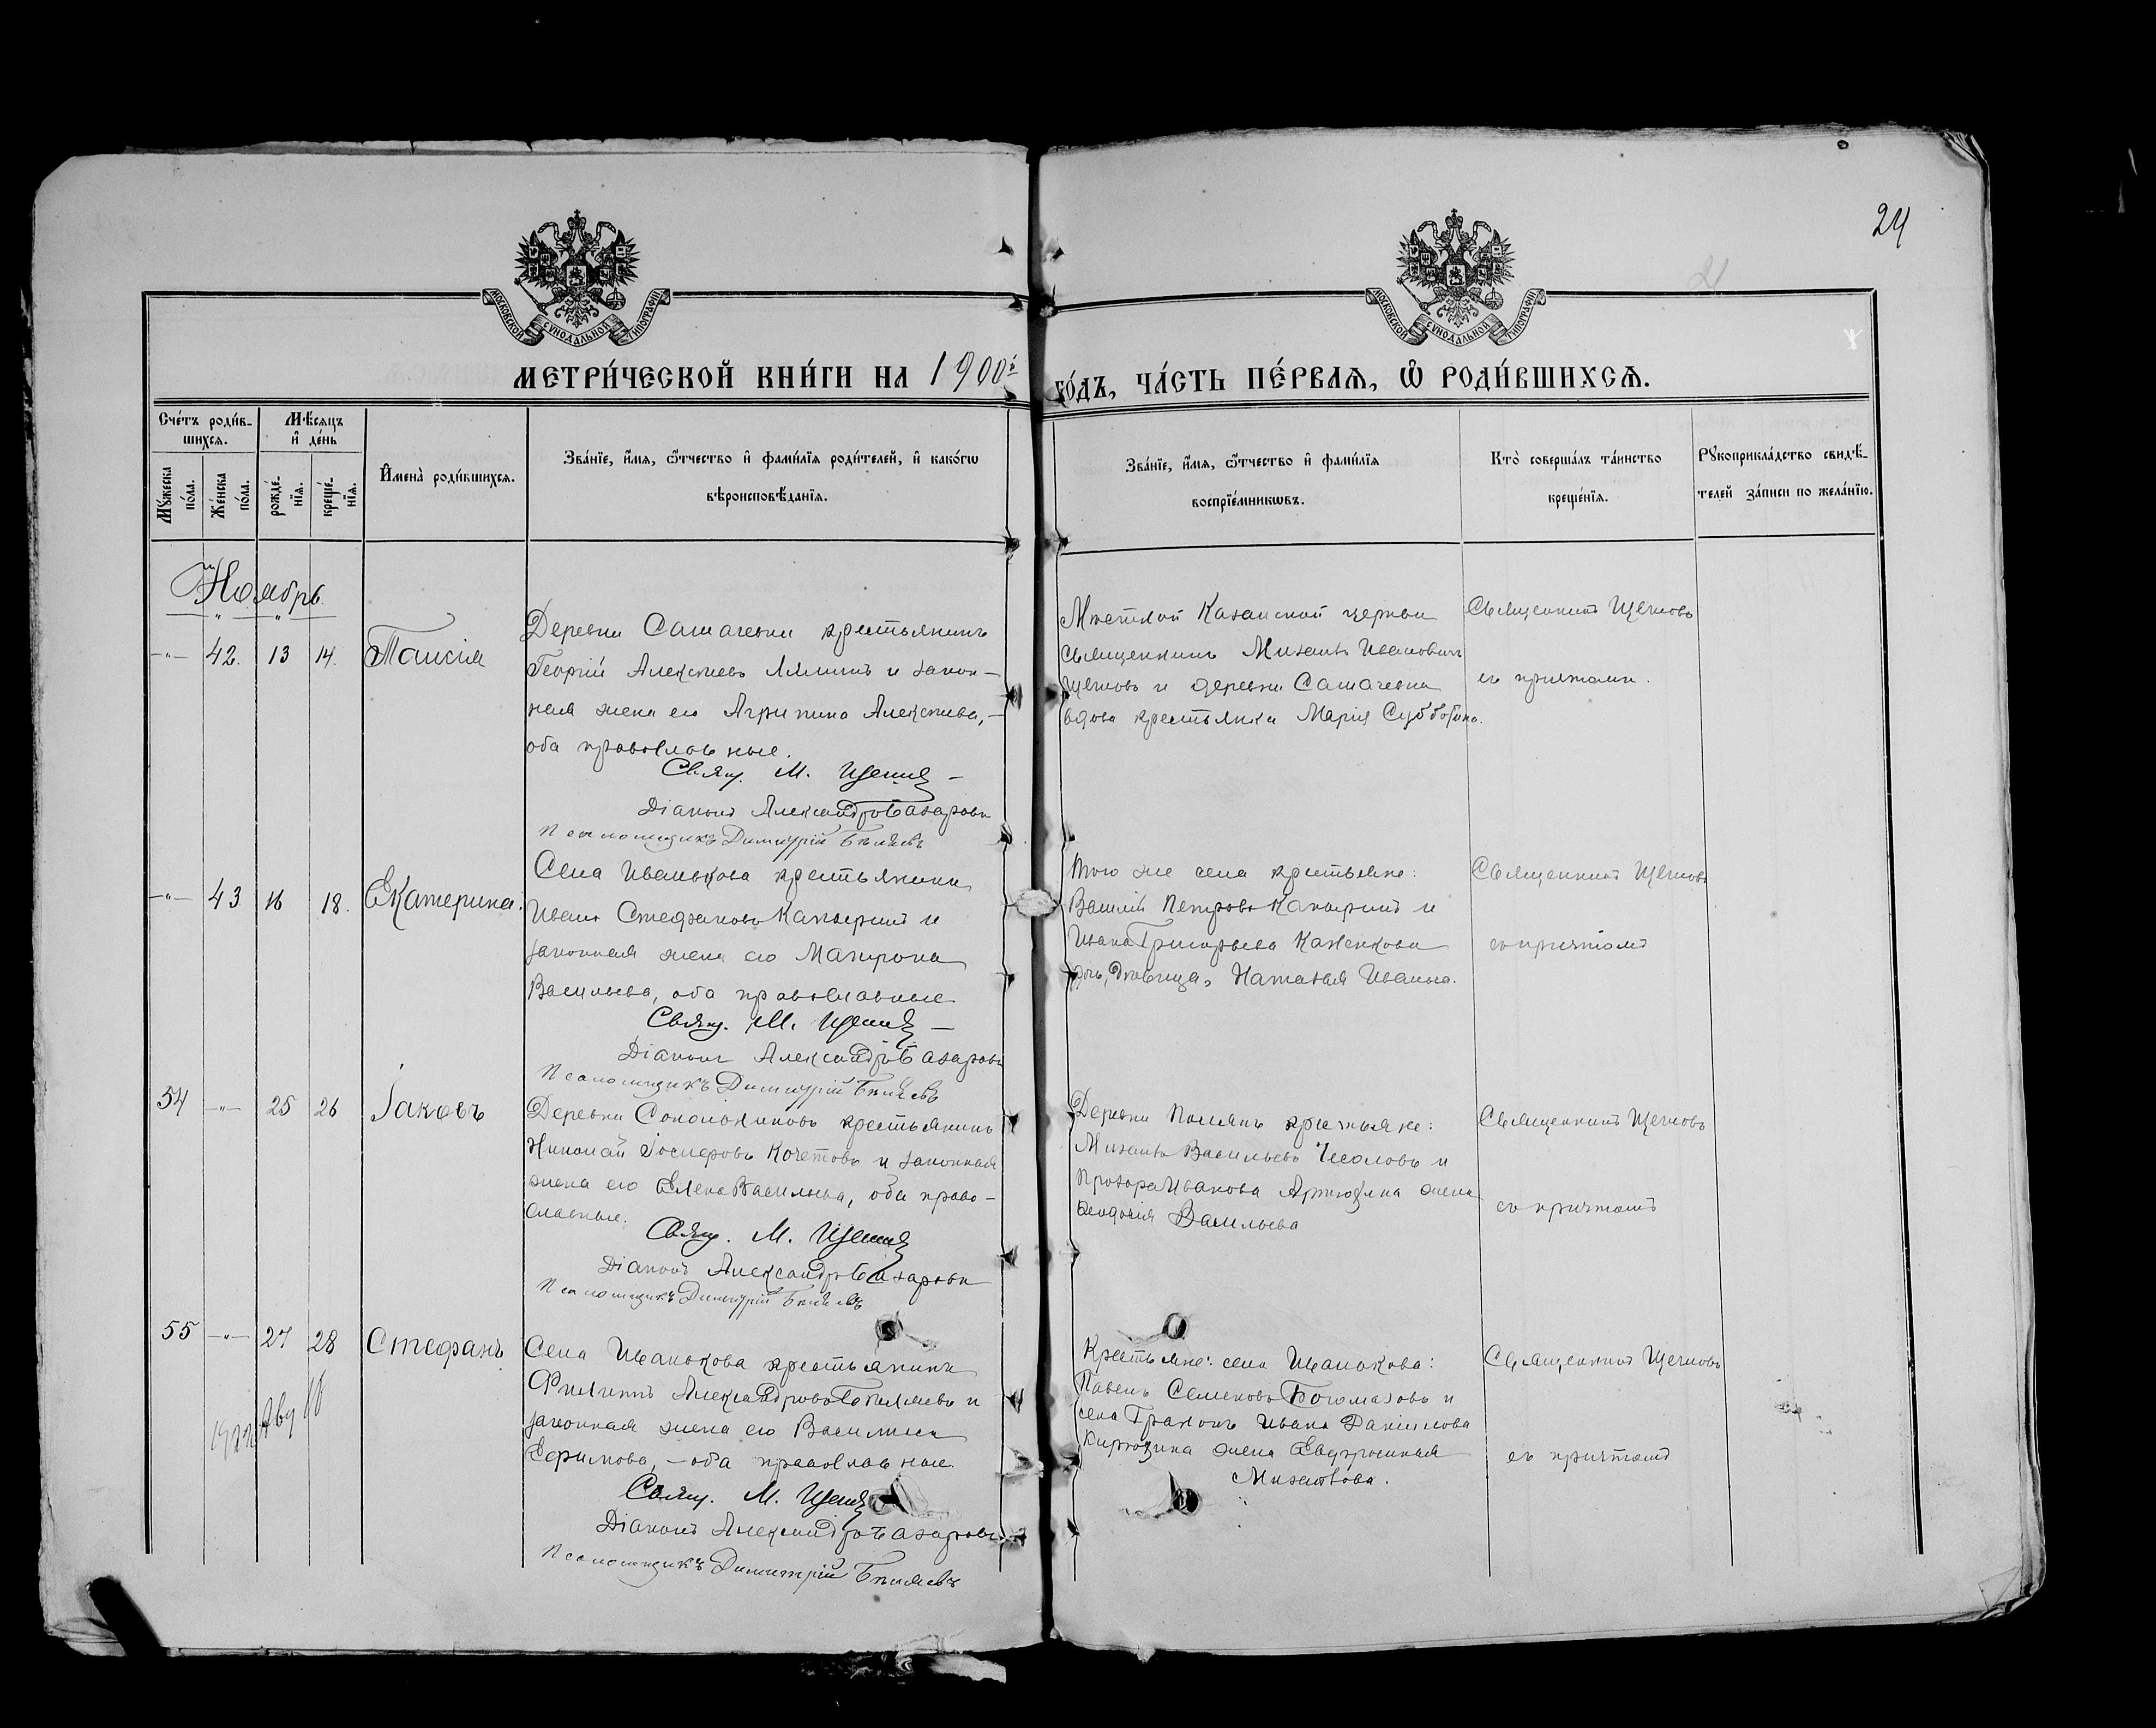 24
МОСКОВСКОЙ СѴНОДАЛЬНОЙ ТИПОГРАФІИ
МОСКОВСКОЙ СѴНОДАЛЬНОЙ ТИПОГРАФІИ
МЕТРИ́ЧЕСКОЙ КНИ́ГИ НА 1900й
ГО́ДЪ, ЧА́СТЬ ПЕ́РВАѦ, Ѿ РОДИ́ВШИХСѦ.
Сче́тъ роди́в-
шихсѧ.
Мꙋжеска по́ла.
Же́нска по́ла.
Мѣсѧцъ
и҆ де́нь
рожде́-
нїѧ.
креще́-
нїѧ.
И҆мена̀ роди́вшихсѧ.
Зва́нїе, и҆́мѧ, ѻ҆́тчество и҆ фами́лїѧ роди́телей, и҆ како́гѡ
вѣроисповѣ́данїѧ.
Зва́нїе, и҆́мѧ, ѻ҆́тчество и҆ фами́лїѧ
воспрїе́мникѡвъ.
Кто̀ соверша́лъ та́инство
креще́нїѧ.
Рꙋкоприкла́дство свидѣ́-
телей за́писи по жела́нїю.
Ноябрь
-"- 42. 13 14. Таисія
Деревни крестьянинъ
Георгій Алексѣевъ и закон-
ная жена его Агрипина Алексѣева,
оба православные.
Свящ. М. Щегловъ
Діаконъ Александръ Базаровъ
Псаломщикъ Димитрій Бѣляевъ
Казанской церкви
священникъ Михаилъ Ивановичъ
Щегловъ и деревни
вдова крестьянка Марія Субботина.
Священникъ Щегловъ
съ причтомъ.
-"- 43 16 18. Екатерина.
Села Иванькова крестьянинъ
Иванъ Стефановъ и
законная жена его Матрона
Васильева, оба православные
Свящ. М. Щегловъ
Діаконъ Александръ Базаровъ
Псаломщикъ Димитрій Бѣляевъ
того же села крестьяне:
Василій Петровъ и
Ивана Григорьева
дочь, дѣвица, Наталья Иванова.
Священникъ Щегловъ
съ причтомъ
54 -"- 25 26 Іаковъ
Деревни крестьянинъ
Николай Іосифовъ Кочетовъ и законная
жена его Елена Васильева, оба право-
славные.
Свящ. М. Щегловъ
Діаконъ Александръ Базаровъ
Псаломщикъ Димитрій Бѣляевъ
Деревни Полянъ крестьяне:
Михаилъ Васильевъ и
Ивакова жена
Ѳеодосія Васильева
Священникъ Щегловъ
съ причтомъ
55 -"- 27 28 Стефанъ
Села Иванькова крестьянинъ
Филиппъ Александровъ и
законная жена его Василиса
Ефимова, — оба православные
Свящ. М. Щегловъ
Діаконъ Александръ Базаровъ
Псаломщикъ Димитрій Бѣляевъ
Крестьяне: села Иванькова:
Павелъ Семеновъ Богомазовъ и
села Ивана Данилова
Кирюхина жена Евфросинія
Михайлова.
Священникъ Щегловъ
съ причтомъ